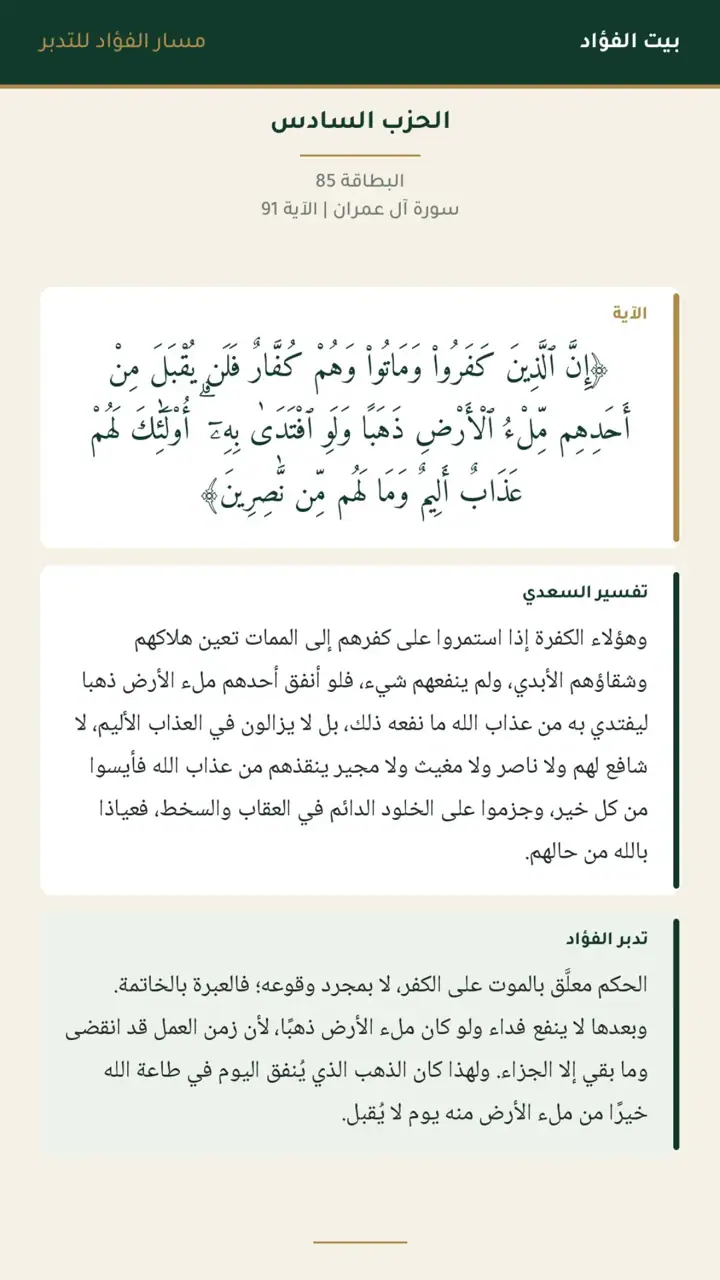 بيت الفؤاد
مسار الفؤاد للتدبر
الحزب السادس
البطاقة 85
سورة آل عمران | الآية 91
الآية
﴿إِنَّ ٱلَّذِينَ كَفَرُواْ وَمَاتُواْ وَهُمۡ كُفَّارٞ فَلَن يُقۡبَلَ مِنۡ
أَحَدِهِم مِّلۡءُ ٱلۡأَرۡضِ ذَهَبٗا وَلَوِ ٱفۡتَدَىٰ بِهِۦٓۗ أُوْلَٰٓئِكَ لَهُمۡ
عَذَابٌ أَلِيمٞ وَمَا لَهُم مِّن نَّٰصِرِينَ﴾
تفسير السعدي
وهؤلاء الكفرة إذا استمروا على كفرهم إلى الممات تعين هلاكهم
وشقاؤهم الأبدي، ولم ينفعهم شيء، فلو أنفق أحدهم ملء الأرض ذهبا
ليفتدي به من عذاب الله ما نفعه ذلك، بل لا يزالون في العذاب الأليم، لا
شافع لهم ولا ناصر ولا مغيث ولا مجير ينقذهم من عذاب الله فأيسوا
من كل خير، وجزموا على الخلود الدائم في العقاب والسخط، فعياذا
بالله من حالهم.
تدبر الفؤاد
الحكم معلَّق بالموت على الكفر، لا بمجرد وقوعه؛ فالعبرة بالخاتمة.
وبعدها لا ينفع فداء ولو كان ملء الأرض ذهبًا، لأن زمن العمل قد انقضى
وما بقي إلا الجزاء. ولهذا كان الذهب الذي يُنفق اليوم في طاعة الله
خيرًا من ملء الأرض منه يوم لا يُقبل.